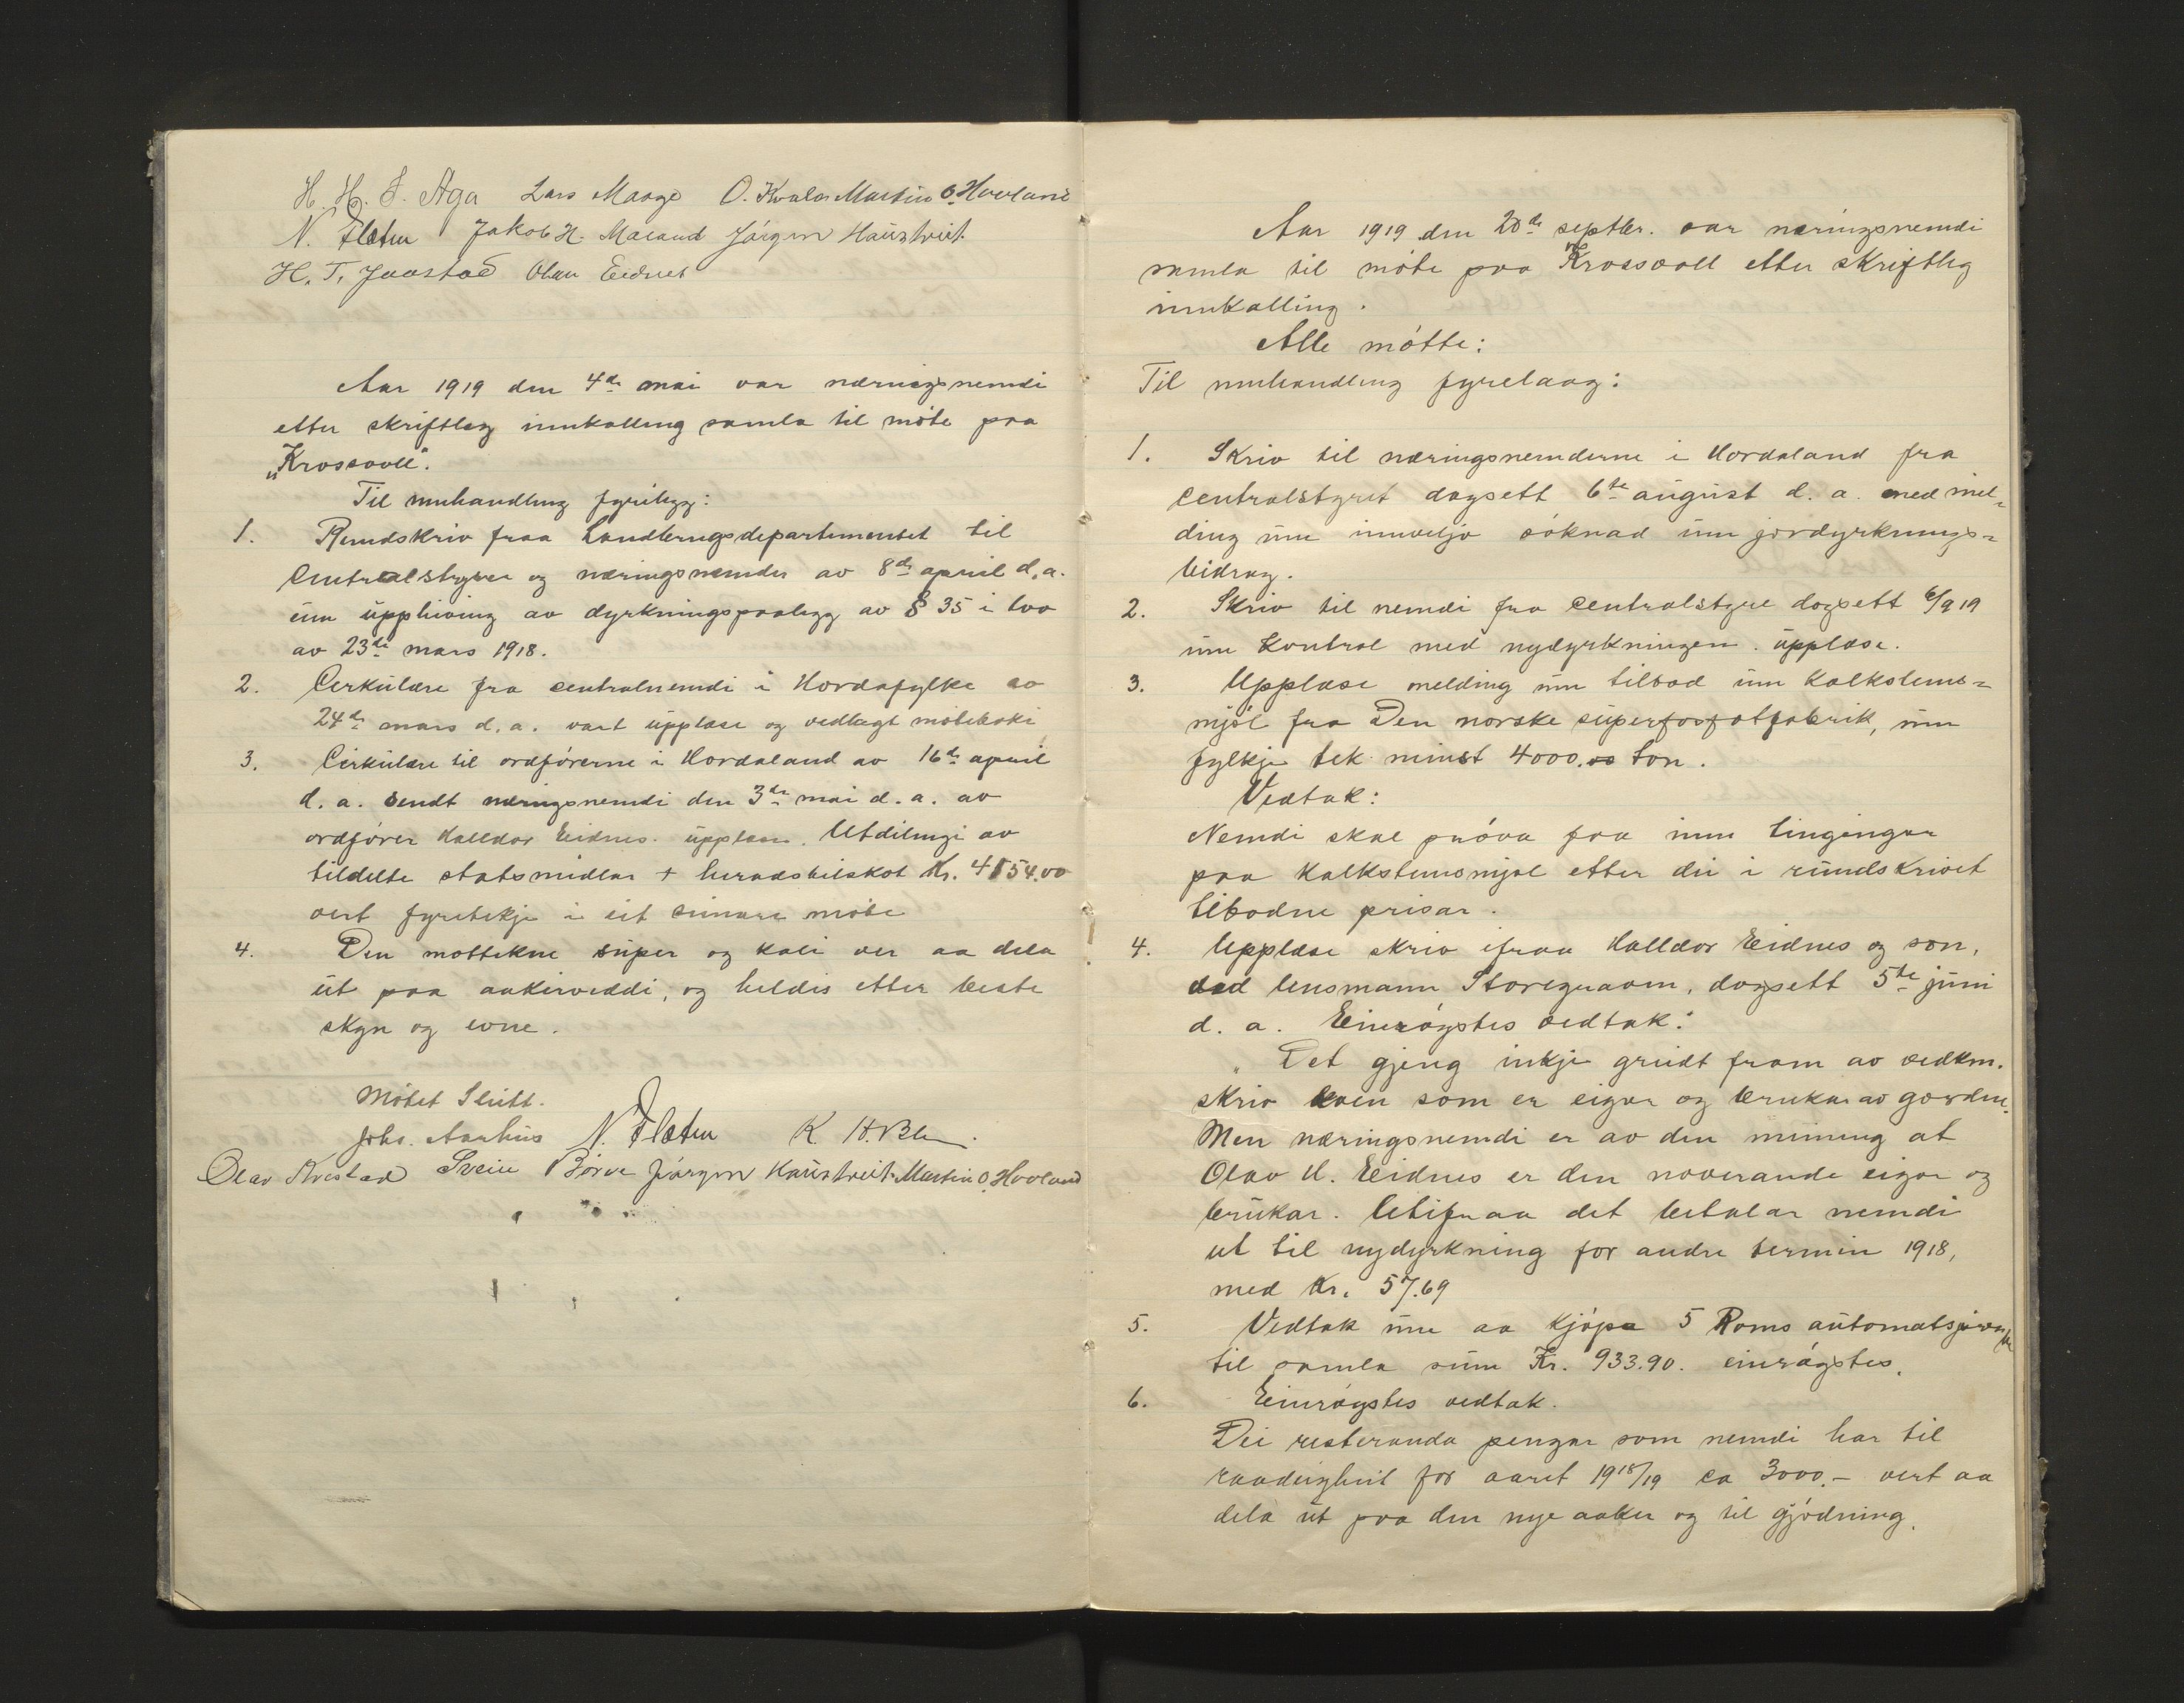 H. H. S. Aga Lars Maage O. Kvale Martin O. Hovland
N. Flaten Jakob H. Maeand Jørgen Haustveit
H. T. Jaastad Olav Eidnes
Aar 1919 den 4de mai var næringsnemdi
etter skriftleg innkalling samla til møte paa
„Krossvoll".
Til umhandling fyrilegg:
1. Rundskriv fraa Landbrugsdepartementet til
Centralstyrer og næringsnemder av 8de april d.a.
um uppheving av dyrkningspaalegg av § 35 i lov
av 23de mars 1918.
2. Cerkulære fra centralnemdi i Hordafylke av
24de mars d.a. vart upplæse og vedlagt møteboki
3. Cirkulære til ordførerne i Hordaland av 16de april
d. a. sendt næringsnemdi den 3de mai d. a. av
ordfører Halldor Eidnes. upplæse. Utdelingi av
tildelte statsmidlar + heradstilskot Kr. 4154.00
vert fyretekje i eit seinare møte
4. Den mottekne super og kali ver aa dela
ut paa aakervoddi, og heldis etter beste
skyn og evne.
Møtet Slutt.
Johs. Aarhus N. Flaten K. H. Ble
Olav Avestad Svein Børve Jørgen Haustveit Martin O. Hovland
Aar 1919 den 20de septbr. var næringsnemdi
samla til møte paa Krossvoll etter skriftleg
innkalling.
Alle møtte:
Til umhandling fyrelaag:
1. Skriv til næringsnemderne i Hordaland fra
centralstyret dagsett 6te august d. a. med mel-
ding um innvilja søknad um jordyrknings-
bidrag.
2. Skriv til nemdi fra centralstyre dagsett 6/9 19
um kontrol med nydyrkningen. upplæse.
3. Upplæse melding um tilbod um kalkstens-
mjøl fra Den norske superfosfatfabrik, um
fylkje tek minst 4000.00 ton.
Vedtak:
Nemdi skal prøva faa inn tingingar
paa kalkstensmjøl etter dei i rundskrivet
tilbodne prisar.
4. Upplæse skriv ifraa Halldor Eidnes og son,
ved lensmann Storegraven, dagsett 5te juni
d. a. Einrøystes vedtak:
„ Det gjeng inkje greidt fram av vedkm.
skriv kven som er eigar og brukar av garden.
Men næringsnemdi er av den meining at
Olav H. Eidnes er den noverande eigar og
brukar. Utifraa det betalar nemdi
ut til nydyrkning for andre termin 1918,
med Kr. 57.69
5. Vedtak um aa kjøpa 5 Roms automatsprøyter
til samla sum Kr. 933.90. einrøystes.
6. Einrøystes vedtak.
Dei resteranda pengar som nemdi har til
raadeigheit for aaret 1918/19 ca 3000.- vert aa
dela ut paa den nye aaker og til gjødning.